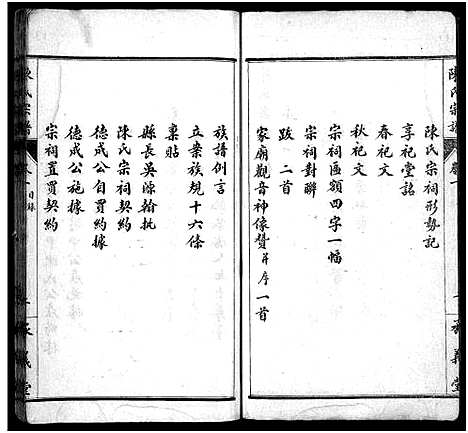 陳氏宗譜
卷一
一
承義堂
陳氏宗祠形勢記
享祀堂銘
春祀文
秋祀文
宗祠匾額四字一幅
宗祠對聯
跋 二首
家廟觀音神像贊并序一首
族譜例言
立案族規十六條
稟貼
縣長吳源翰批
陳氏宗祠契約
德成公自買約據
德成公施據
宗祠置買契約
陳氏宗譜
卷一
目錄
承義堂